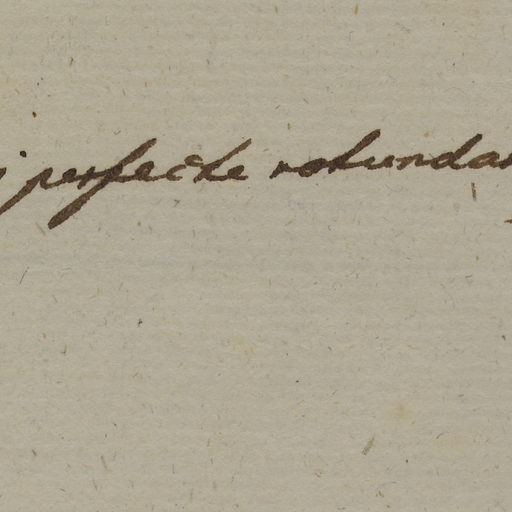 perfecte rotunda